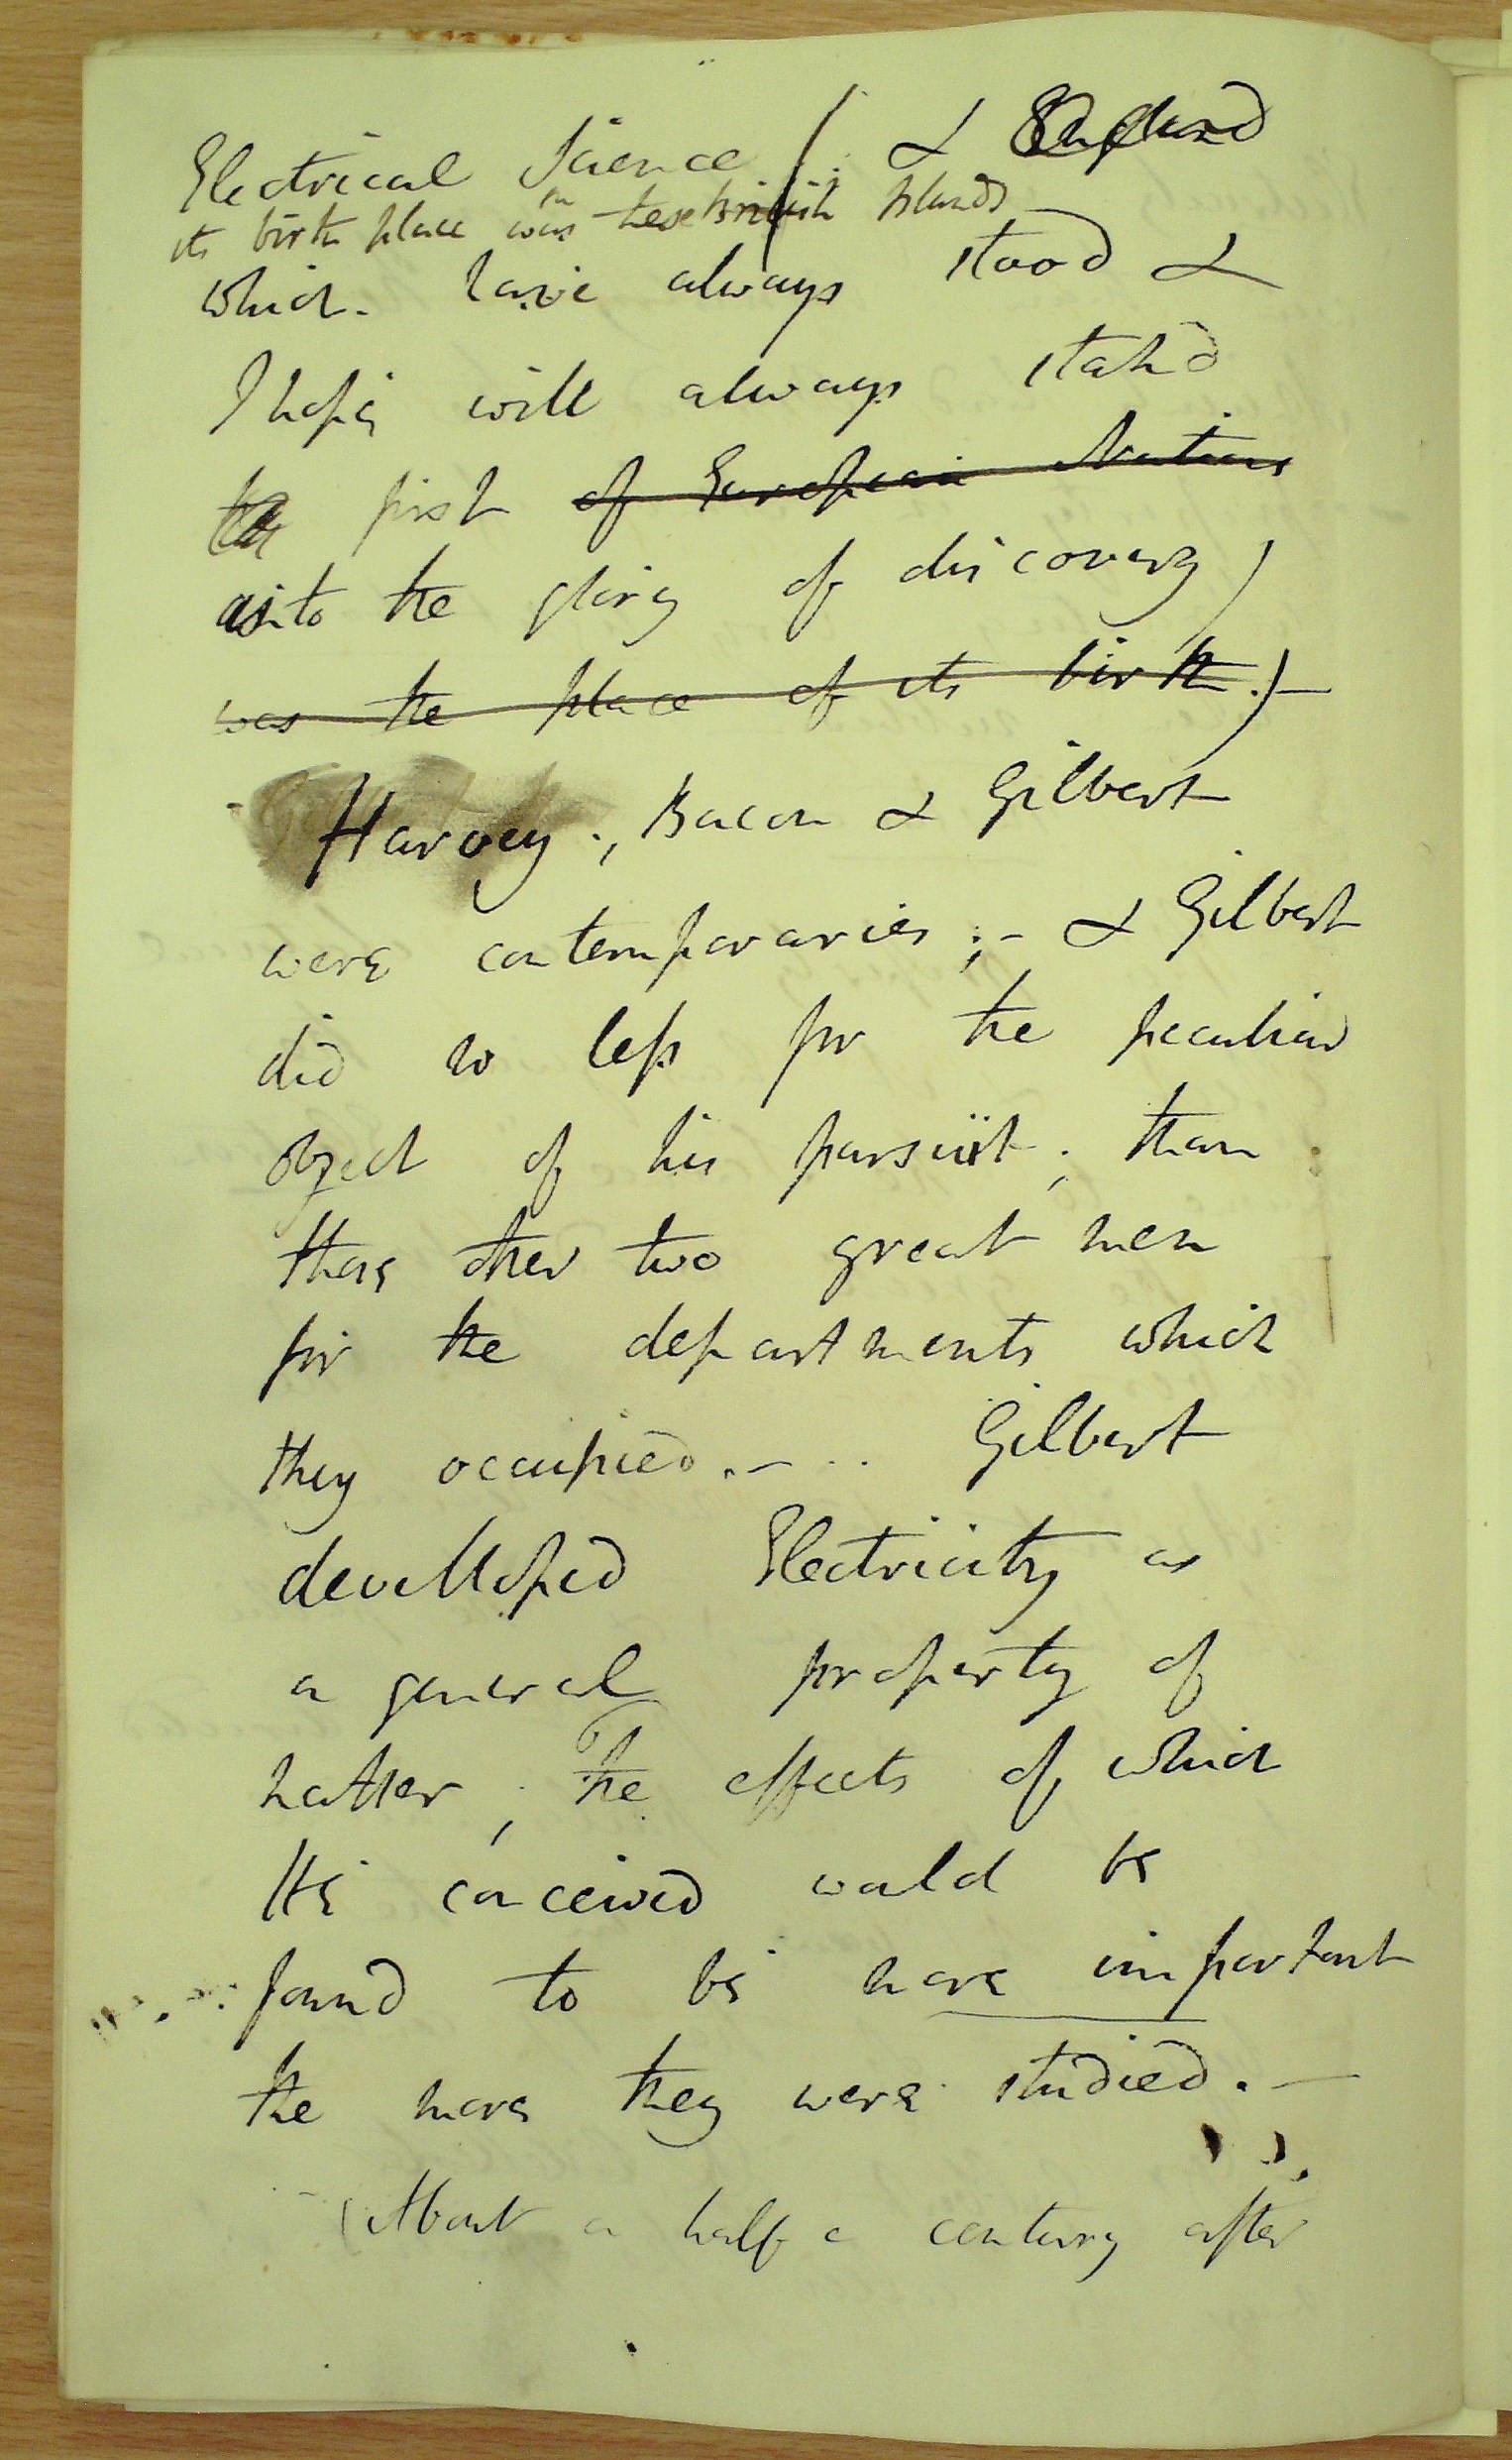 Electrical Science / & England
its birth place was in these British Islands
which have always stood &
I hope will always stand
the first of European Nations
as to the glory of discovery)
was the place of its birth.)—
Harvey., Bacon & Gilbert
were contemporaries;- & Gilbert
did no less for the peculiar
object of his pursuit; than
those other two great men
for the departments which
they occupied.— Gilbert
developed Electricity as
a general property of
matter; the effects of which
He conceived would be
found to be more important
the more they were studied.—
(About a half a century after